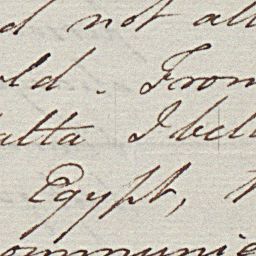 d not all
old. From
alta I bel
Egypt,
ommunic